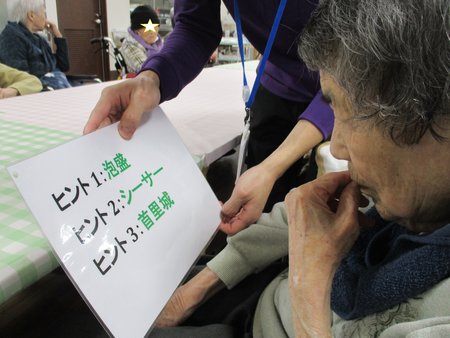 ヒント1:泡盛
ヒント2:シーサー
ヒント3:首里城